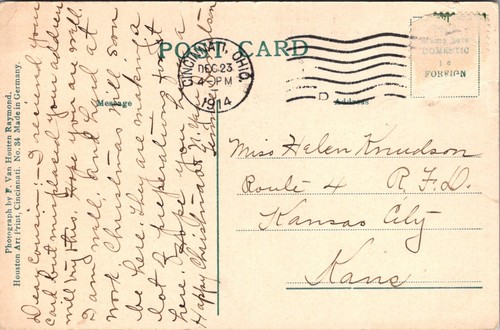 POST CARD
CINCINNATI, OHIO.
DEC 23
4-PM
1914
Place Here
DOMESTIC
1c
FOREIGN
Message
Address
Dear Cousin:- I received your
card but misplaced your address
will try this. Hope you are well.
I am well, and hard at
work. Christmas will soon
be here. They are making a
lot of preparations for it
here. I hope you have a
Happy Christmas & New
Miss Helen Knudson
Route 4 R.F.D.
Kansas City
Kans
Photograph by F. Van Houten Raymond.
Houston Art Print, Cincinnati. No. 34 Made in Germany.